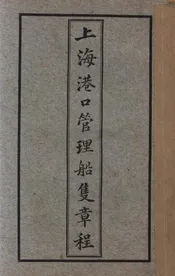 上海港口管理船隻章程